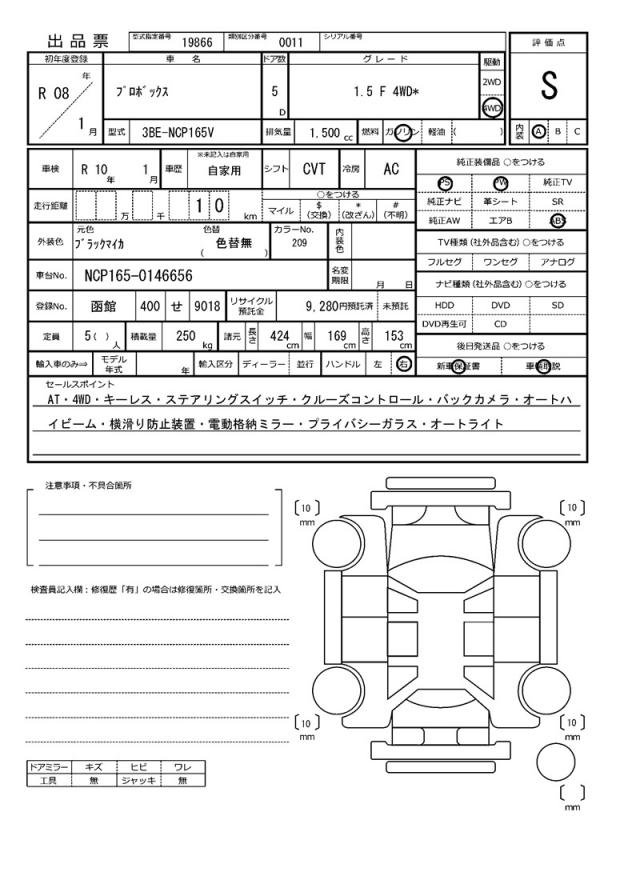 出品票 型式指定番号 19866 類別区分番号 0011 シリアル番号
評価点
S
内装 A B C
初年度登録 車名 ドア数 グレード 駆動
R 08 年 1 月
プロボックス 5 D 1.5 F 4WD* 2WD 4WD
型式 3BE-NCP165V 排気量 1.500 cc 燃料 ガソリン 軽油 ( )
車検 R 10 年 1 月 車歴 ※未記入は自家用 自家用 シフト CVT 冷房 AC
走行距離 万 千 1 0 km
○をつける
マイル $ (交換) * (改ざん) # (不明)
外装色 元色 ブラックマイカ 色替 色替無 ( ) カラーNo. 209 内装色
車台No. NCP165-0146656 名変期限 月 日
登録No. 函館 400 せ 9018 リサイクル預託金 9,280円預託済 未預託
定員 5( ) 人 積載量 250 kg 諸元 長さ 424 cm 幅 169 cm 高さ 153 cm
輸入車のみ⇒ モデル年式 年 輸入区分 ディーラー 並行 ハンドル 左 右
純正装備品 ○をつける
PS PW 純正TV
純正ナビ 革シート SR
純正AW エアB ABS
TV種類 (社外品含む) ○をつける
フルセグ ワンセグ アナログ
ナビ種類 (社外品含む) ○をつける
HDD DVD SD
DVD再生可 CD
後日発送品 ○をつける
新車保証書 車輌取説
セールスポイント
AT・4WD・キーレス・ステアリングスイッチ・クルーズコントロール・バックカメラ・オートハ
イビーム・横滑り防止装置・電動格納ミラー・プライバシーガラス・オートライト
注意事項・不具合箇所
検査員記入欄：修復歴「有」の場合は修復箇所・交換箇所を記入
ドアミラー キズ ヒビ ワレ
工具 無 ジャッキ 無
[10] mm
[10] mm
[10] mm
[10] mm
[ ] mm